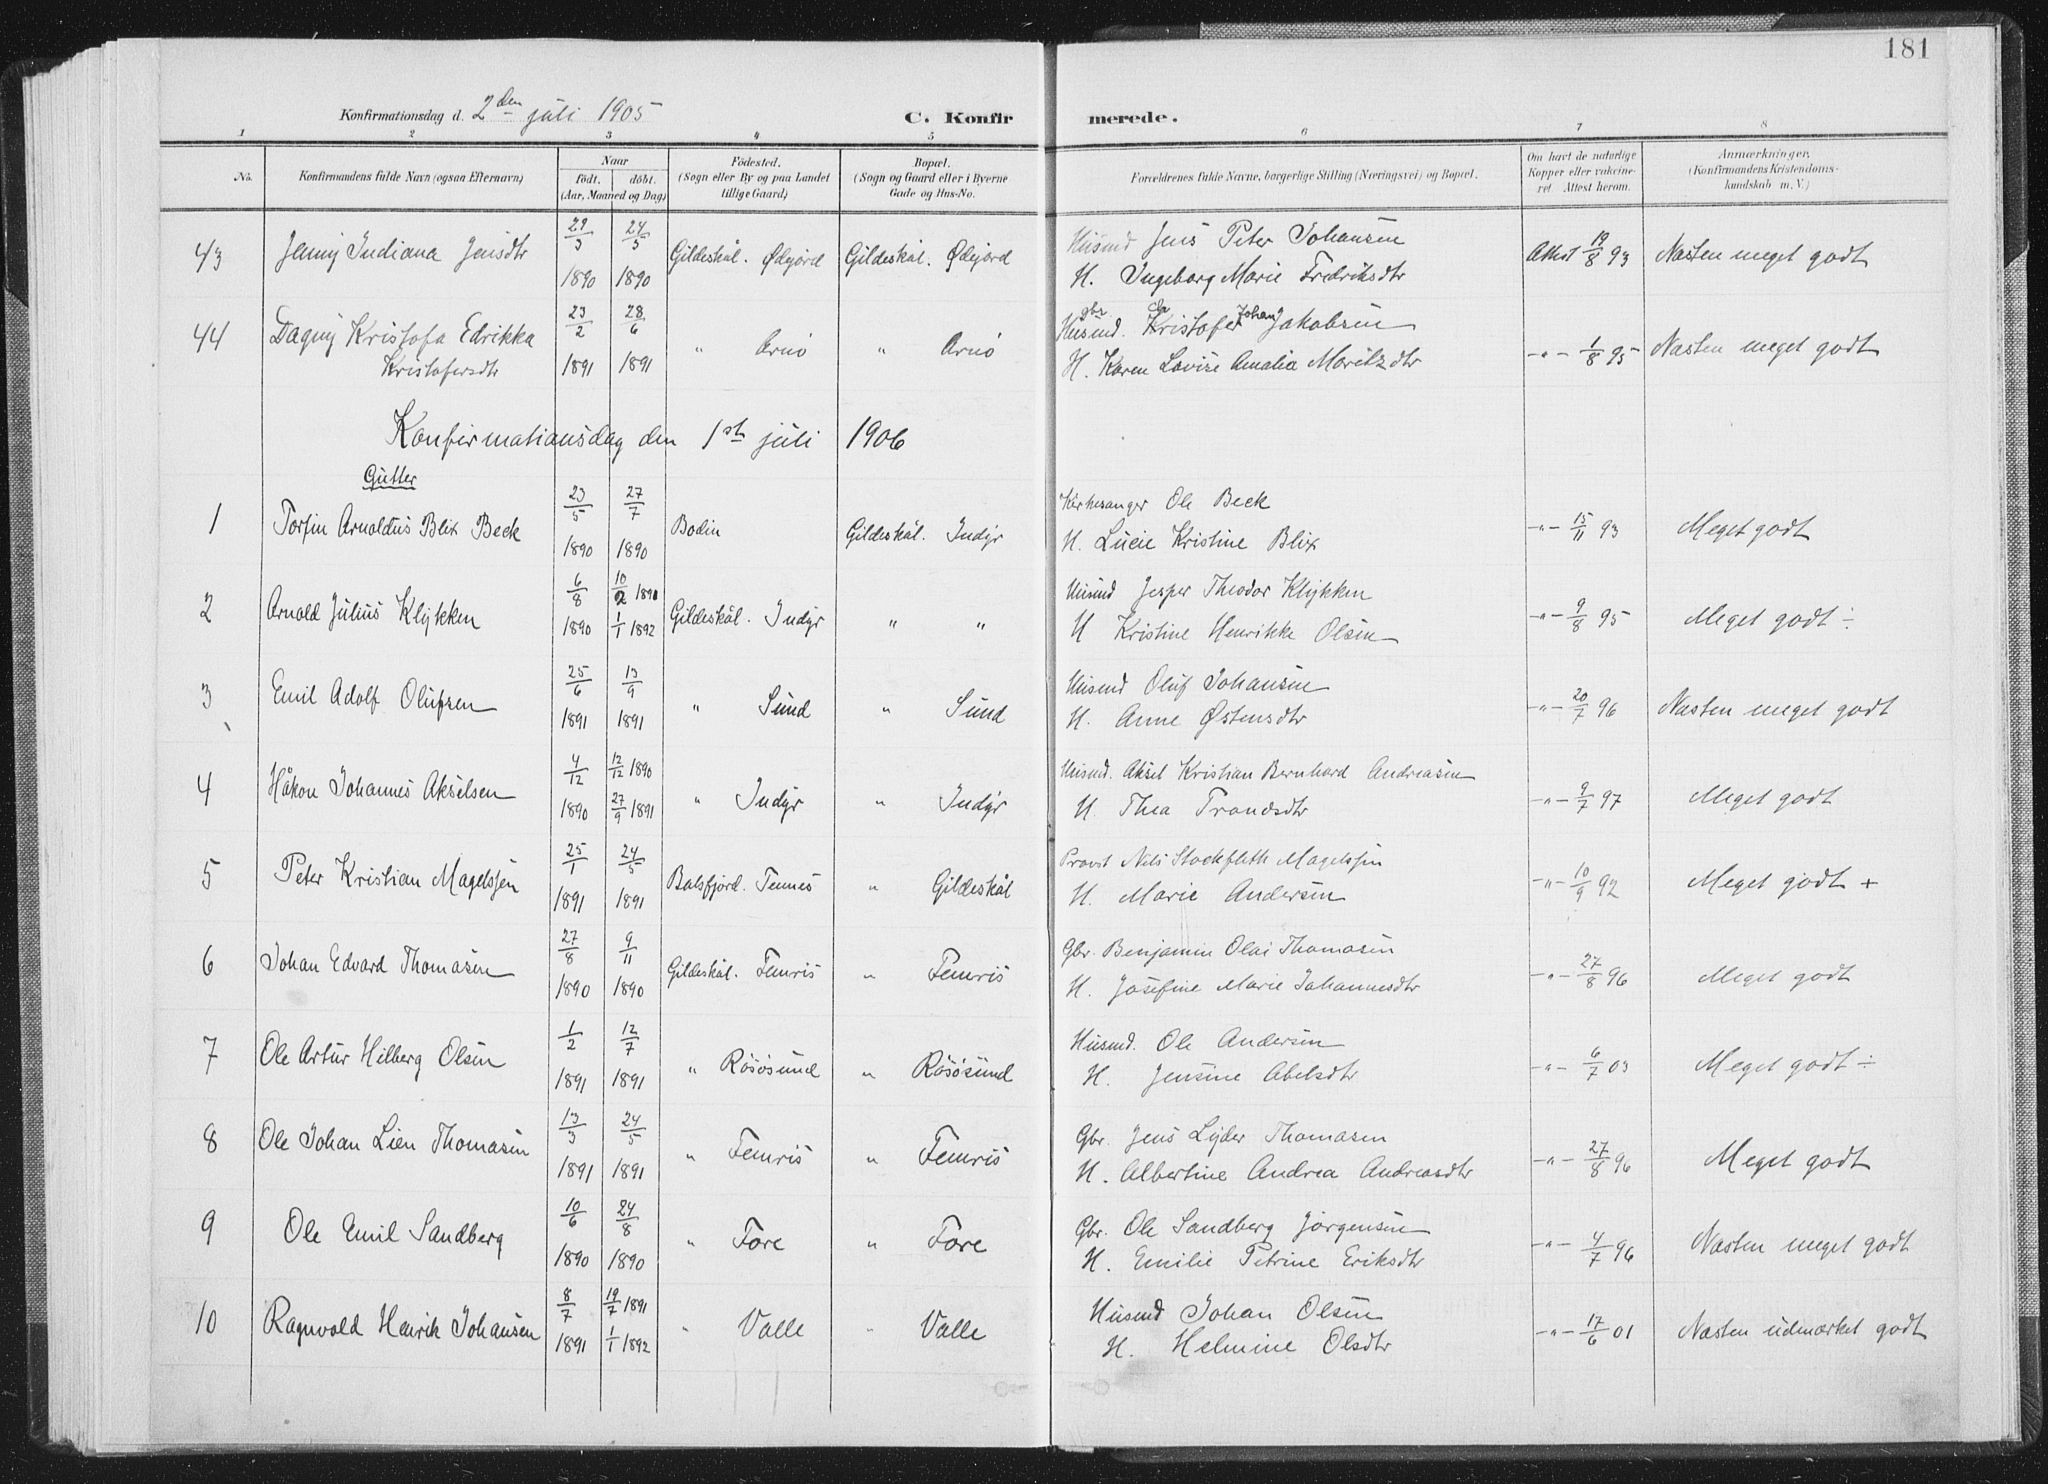 181
Konfirmationsdag d. 2den juli 1905
C. Konfirmerede.
1 2 3 4 5 6 7 8
No.
Konfirmandens fulde Navn (ogsaa Efternavn)
Naar
født. døbt.
(Aar, Maaned og Dag)
Fødested.
(Sogn eller By og paa Landet
tillige Gaard)
Bopæl.
(Sogn og Gaard eller i Byerne
Gade og Hus-No.
Forældrenes fulde Navne, borgerlige Stilling (Næringsvei) og Bopæl.
Om havt de naturlige
Kopper eller vaccine-
ret. Attest herom.
Anmærkninger.
(Konfirmandens Kristendoms-
kundskab m. V.)
43 Jenny Indiana Jensdtr 29/3 1890 24/5 1890 Gildeskål. Ødejord Gildeskål. Ødejord
Husmd Jens Peter Johansen
H. Ingeborg Marie Fredriksdtr
Attest 19/8 93 Næsten meget godt
44 Dagny Kristofa Edrikka
Kristofersdtr
23/2 1891 28/6 1891 " Arnø " Arnø
gbr
Husmd. Kristofer Johan Jakobsen
H. Karen Lovise Amalia Moritzdtr
-"- 1/8 95 Næsten meget godt
Konfirmationsdag den 1st juli 1906
Gutter
1 Torfin Arnoldus Blix Beck 23/5 1890 27/7 1890 Bodin Gildeskål. Indyr
Kirkesanger Ole Beck
H. Lucie Kristine Blix
-"- 15/11 93 Meget godt
2 Arnold Julius Klykken 6/8 1890 10/2 1890 1/1 1892 Gildeskål. Indyr " "
Husmd Jesper Theodor Klykken
H Kristine Henrikke Olsen
-"- 9/8 95 Meget godt ÷
3 Emil Adolf Olufsen 25/6 1891 13/9 1891 " Sund " Sund
Husmd Oluf Johansen
H. Anne Østensdtr
-"- 20/7 96 Næsten meget godt
4 Håkon Johannes Akselsen 4/12 1890 12/12 1890 27/9 1891 " Indyr " Indyr
Husmd. Aksel Kristian Bernhard Andreasen
H. Thea Trondsdtr
-"- 9/7 97 Meget godt
5 Peter Kristian Magelssen 25/1 1891 24/5 1891 Balsfjord. Tennes " Gildeskål
Provst Nils Stockfleth Magelssen
H. Marie Andersen
-"- 10/9 92 Meget godt +
6 Johan Edvard Thomasen 27/8 1890 9/11 1890 Gildeskål. Femris " Femris
Gbr. Benjamin Olai Thomasen
H. Josefine Marie Johannesdtr
-"- 27/8 96 Meget godt
7 Ole Artur Hilberg Olsen 1/2 1891 12/7 1891 " Røsøsund " Røsøsund
Husmd. Ole Andersen
H. Jensine Abelsdtr
-"- 6/7 03 Meget godt ÷
8 Ole Johan Lien Thomasen 13/3 1891 24/5 1891 " Femris " Femris
Gbr. Jens Lyder Thomasen
H. Albertine Andrea Andreasdtr
-"- 27/8 96 Meget godt
9 Ole Emil Sandberg 10/6 1890 24/8 1890 " Fore " Fore
Gbr. Ole Sandberg Jørgensen
H. Emilie Petrine Eriksdtr
-"- 4/7 96 Næsten meget godt
10 Ragnvald Henrik Johansen 8/7 1891 19/7 1891 1/1 1892 " Valle " Valle
Husmd Johan Olsen
H. Helmine Olsdtr
-"- 17/6 01 Næsten udmærket godt